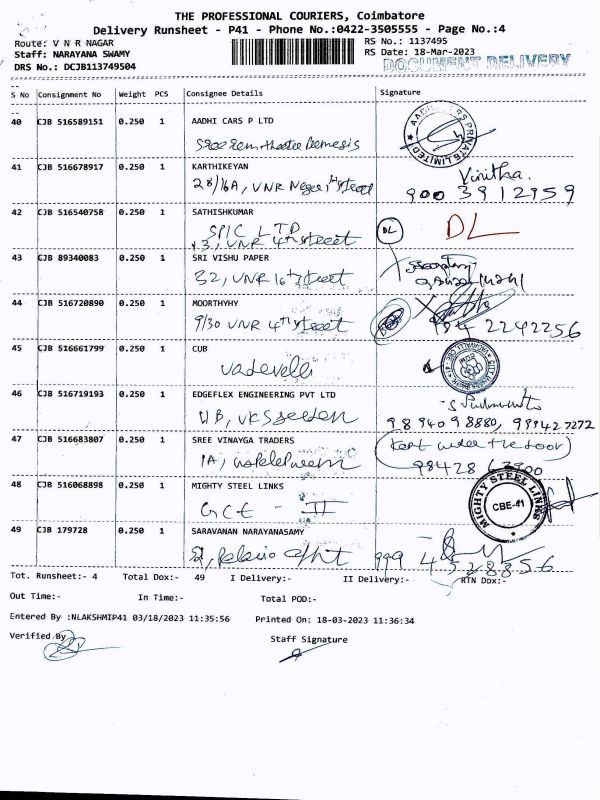 THE PROFESSIONAL COURIERS, Coimbatore
Delivery Runsheet - P41 - Phone No.:0422-3505555 - Page No.:4
Route: V N R NAGAR
RS No.: 1137495
Staff: NARAYANA SWAMY
RS Date: 18-Mar-2023
DRS No.: DCJB113749504
DOCUMENT DELIVERY
S No Consignment No Weight PCS Consignee Details Signature
40 CJB 516589151 0.250 1 AADHI CARS P LTD
41 CJB 516678917 0.250 1 KARTHIKEYAN
Vinitha.
28/16A, VNR Nager, 1st street
900 3912959
42 CJB 516540758 0.250 1 SATHISHKUMAR
SPIC LTD DL DL
13, VNR 4th street
43 CJB 89340083 0.250 1 SRI VISHU PAPER
32, VNR 16th street
44 CJB 516720890 0.250 1 MOORTHYHY
9/30 VNR 4th street
994 2242256
45 CJB 516661799 0.250 1 CUB
Vadevelli
46 CJB 516719193 0.250 1 EDGEFLEX ENGINEERING PVT LTD
98940 98880, 999427272
47 CJB 516683807 0.250 1 SREE VINAYGA TRADERS
Kept under the door
1A,
48 CJB 516068898 0.250 1 MIGHTY STEEL LINKS
GCE - II
MIGHTY STEEL LINKS
CBE-41
49 CJB 179728 0.250 1 SARAVANAN NARAYANASAMY
999 4528856
Tot. Runsheet:- 4 Total Dox:- 49 I Delivery:- II Delivery:- RTN Dox:-
Out Time:- In Time:- Total POD:-
Entered By :NLAKSHMIP41 03/18/2023 11:35:56 Printed On: 18-03-2023 11:36:34
Verified By Staff Signature